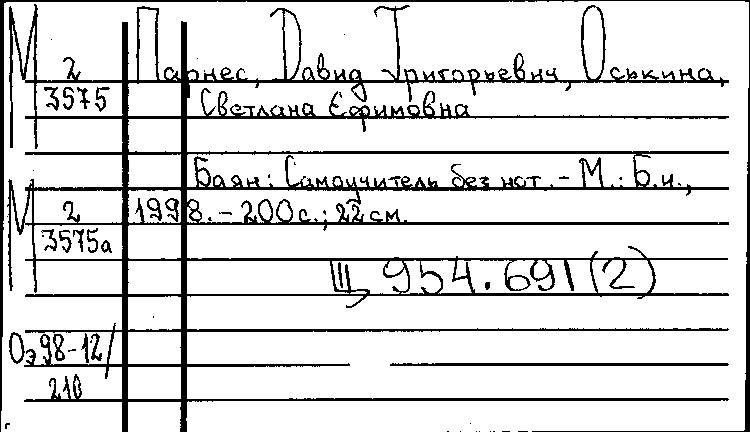 М 2 Парнес, Давид Григорьевич, Оськина,
3575 Светлана Ефимовна
Баян: Самоучитель без нот. - М.: Б.и.,
М 2 1998. - 200 с.; 22 см.
3575а
Щ 954.691(2)
Оэ 98-12/
210